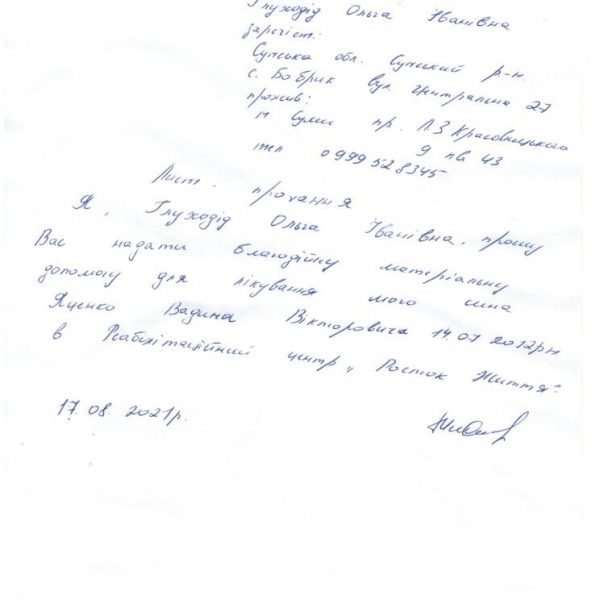 Глуходід Ольга Іванівна
зареєст:
Сумська обл. Сумський р-н
с. Бобрик вул Центральна 27
прожив:
м Суми пр. Л.З Красовицького
9 кв 43
тел 0999528345
Лист - прохання
Я, Глуходід Ольга Іванівна, прошу
Вас надати благодійну матеріальну
допомогу для лікування мого сина
Яценко Вадима Вікторовича 14.07 2012рн
в Реабілітаційний центр „ Росток Життя".
17.08.2021р.